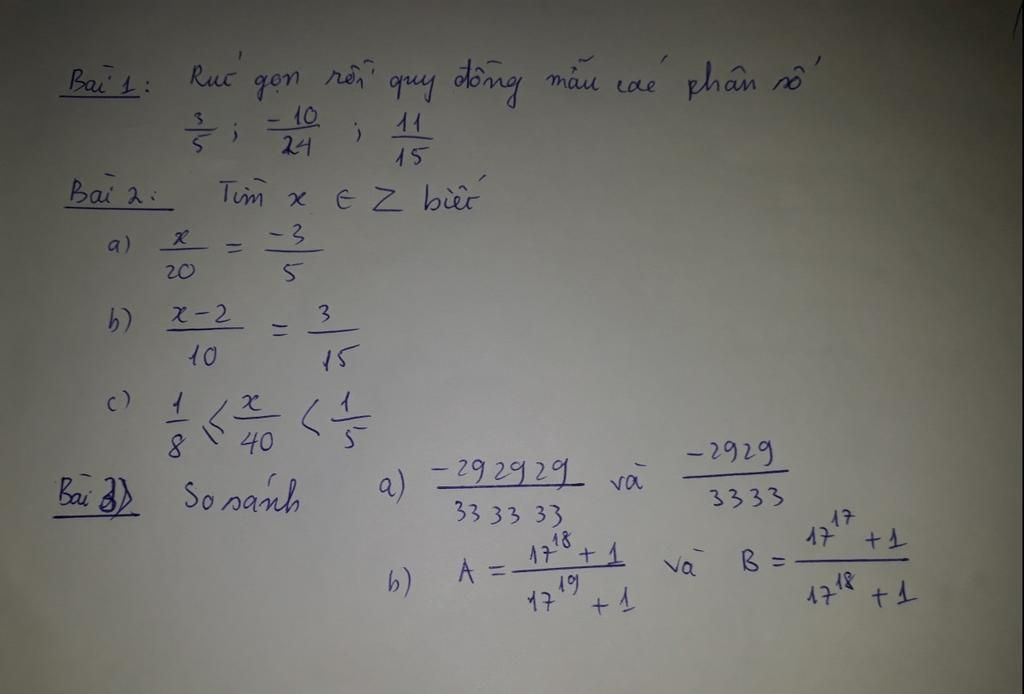 Bài 1: Rút gọn rồi quy đồng mẫu các phân số
3/5 ; -10/24 ; 11/15
Bài 2: Tìm x ∈ Z biết
a) x/20 = -3/5
b) x-2/10 = 3/15
c) 1/8 ≤ x/40 < 1/5
Bài 3) So sánh a) -292929/333333 và -2929/3333
b) A = 17^18 + 1/17^19 + 1 và B = 17^17 + 1/17^18 + 1